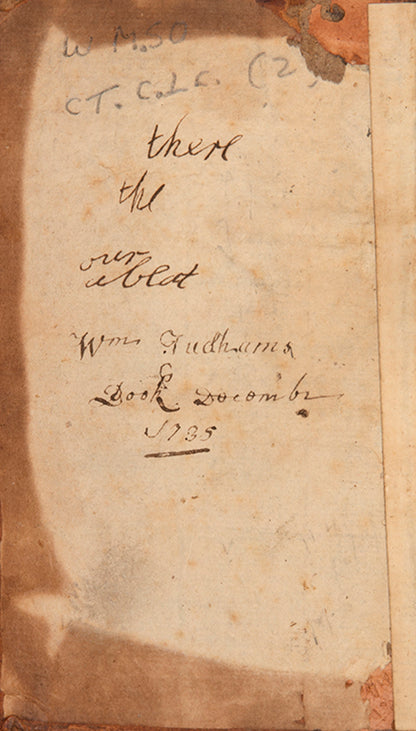 W M.SO
CT. C.L.C. (2)
there
the
our
ablot
Wm Tudhams
Book Decembr
1735